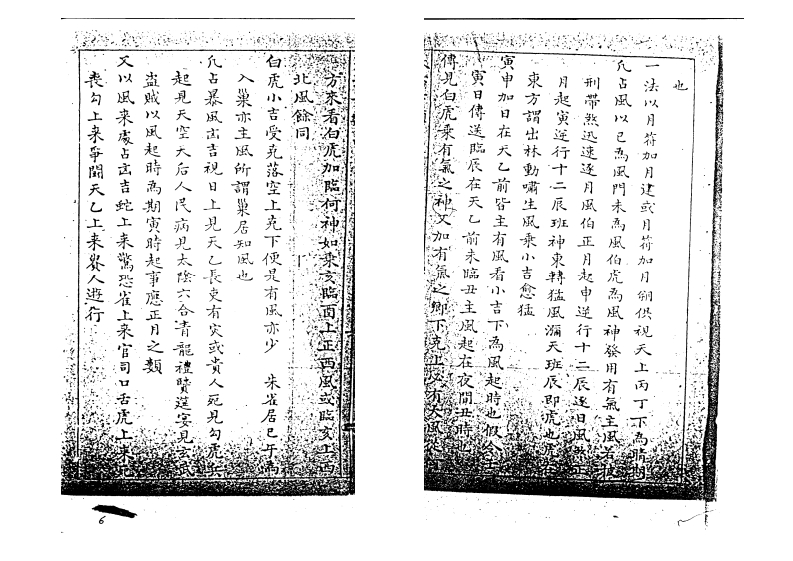 也
一法以月符加月建或月符加月朔俱視天上丙丁下為晴期
凡占風以巳為風門未為風伯虎為風神發用有氣主風若
刑帶煞迅速逐月風伯正月起申逆行十二辰逐日風煞正
月起寅逆行十二辰班神東轉猛風瀰天班辰即虎也虎在
東方謂出林動嘯生風乘小吉愈猛
寅申加日在天乙前皆主有風看小吉下為風起時也假令壬
寅日傳送臨辰在天乙前未臨丑主風起在夜間丑時也
傳見白虎乘有氣之神又加有氣之鄉下克上必有大風
方來看白虎加臨何神如乘亥臨酉上正西風或臨亥上西
北風餘同
白虎小吉受克落空上克下便是有風亦少 朱雀居巳午為
入巢亦主風所謂巢居知風也
凡占暴風吉凶視日上見天乙長吏有灾或貴人死見勾虎兵
起見天空天后人民病見太陰六合青龍禮贄筵宴見玄武
盜賊以風起時為期寅時起事應正月之類
又以風来處占吉凶蛇上来驚恐雀上来官司口舌虎上来
喪勾上来爭鬭天乙上来貴人遊行
6